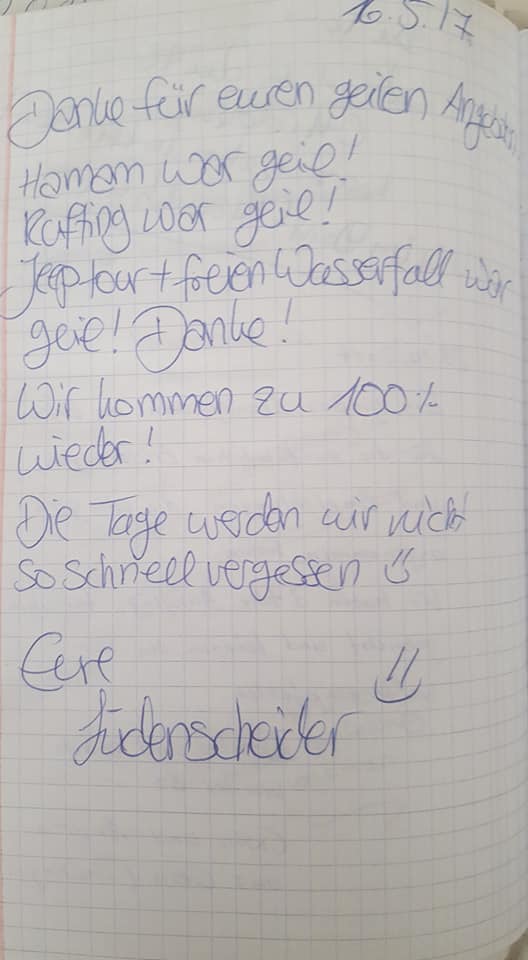 16.5.17
Danke für euren geilen Angebote,
Hamam war geil!
Rafting war geil!
Jeeptour + freien Wasserfall war
geil! Danke!
Wir kommen zu 100%
wieder!
Die Tage werden wir nicht
so schnell vergessen
Eure
Lüdenscheider